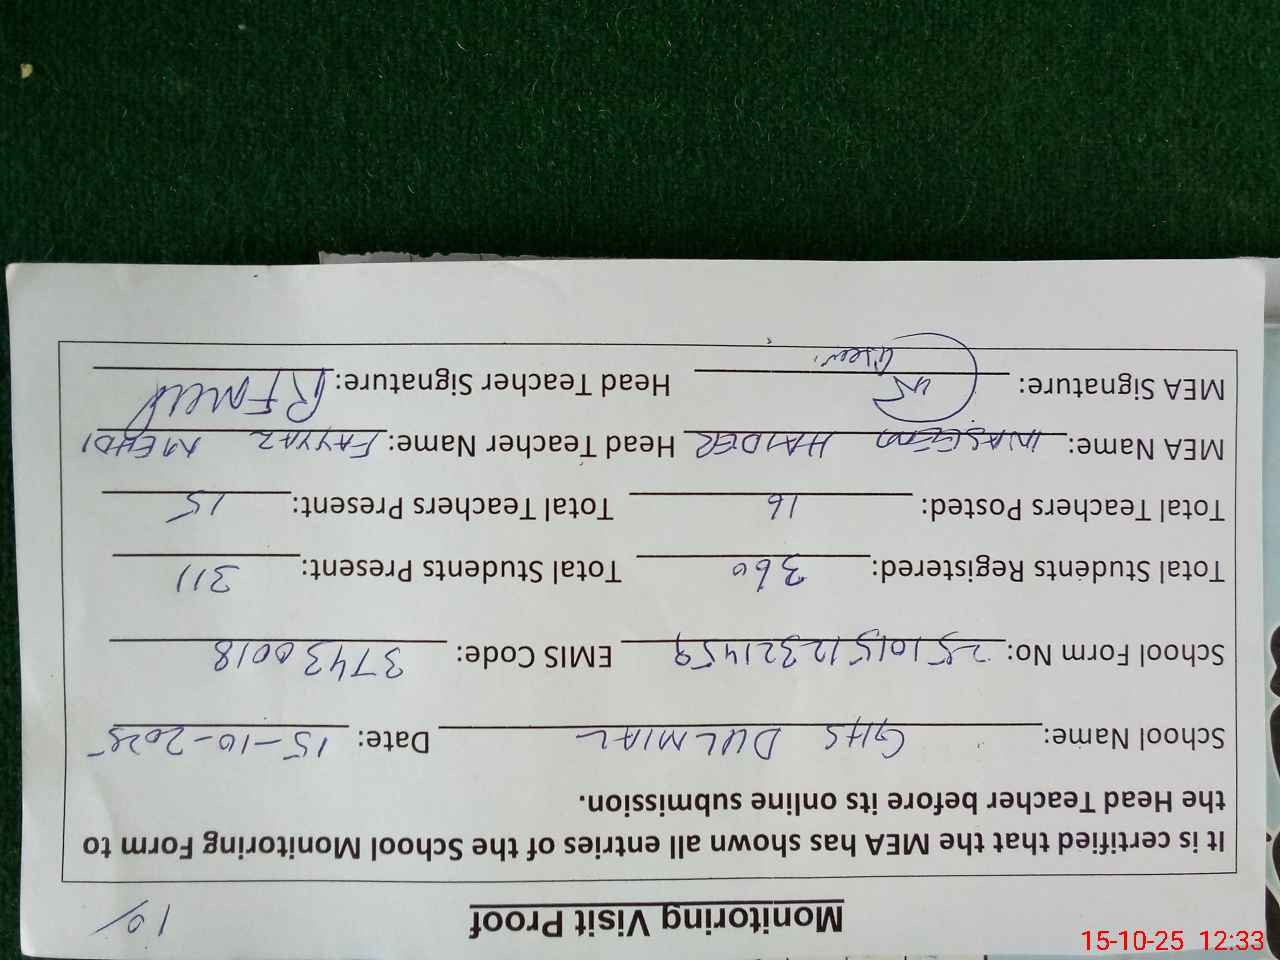 Monitoring Visit Proof
10/
It is certified that the MEA has shown all entries of the School Monitoring Form to
the Head Teacher before its online submission.
School Name: GHS DULMIAL Date: 15-10-2025
School Form No: 25101512321459 EMIS Code: 37430018
Total Students Registered: 360 Total Students Present: 311
Total Teachers Posted: 16 Total Teachers Present: 15
MEA Name: WASEEM HAIDER Head Teacher Name: FAYYAZ MEHDI
MEA Signature: Head Teacher Signature:
15-10-25 12:33